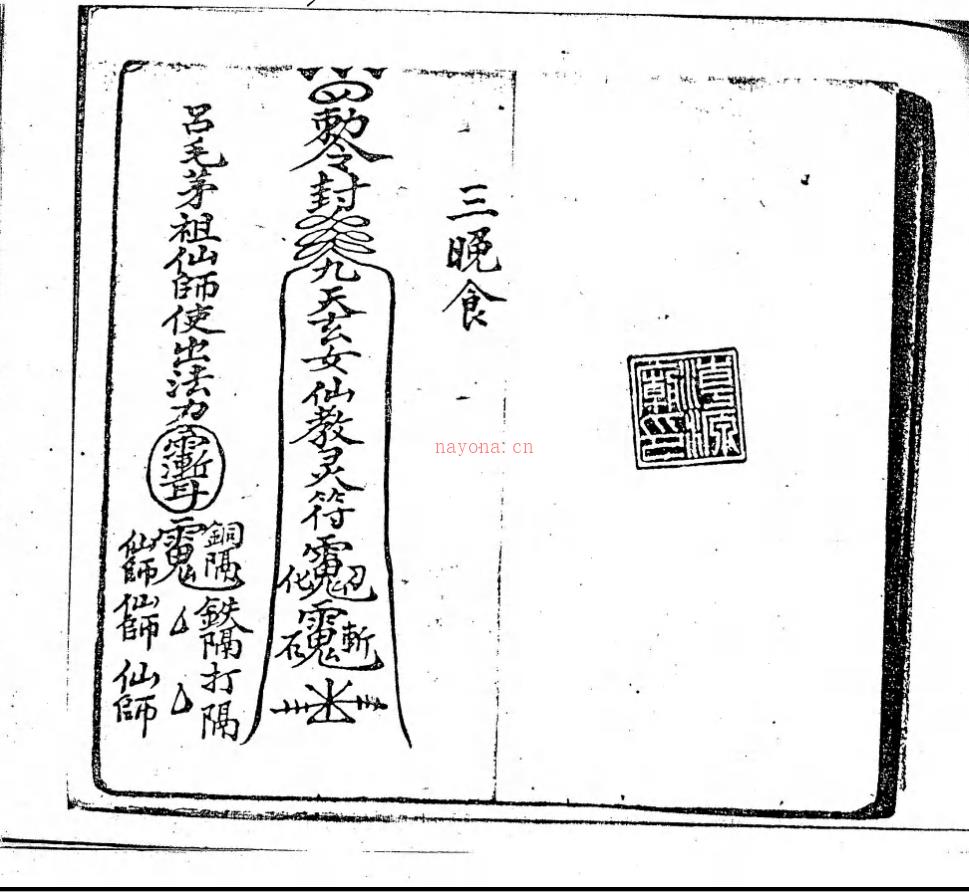 三晚食
勅令封九天玄女仙教灵符
化
印
石
斬
呂毛茅祖仙師使出法力
銅隔
鉄隔打隔
仙師仙師仙師
nayona.cn